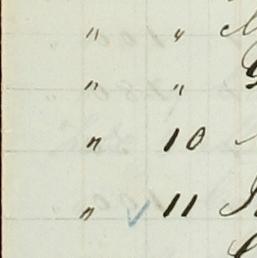 " "
" "
" 10
" ✓ 11